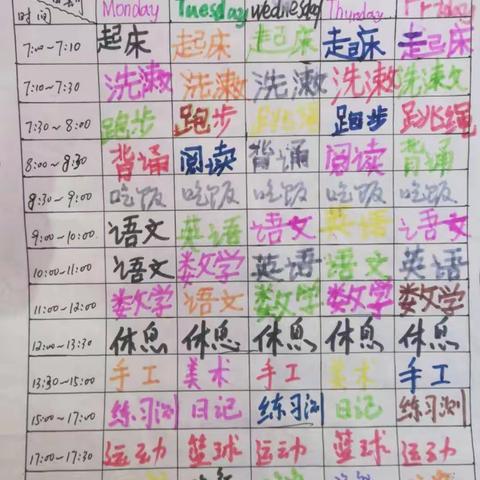 时间 Monday Tuesday Wednesday Thursday Friday
7:00~7:10 起床 起床 起床 起床 起床
7:10~7:30 洗漱 洗漱 洗漱 洗漱 洗漱
7:30~8:00 跑步 跑步 跳绳 跑步 跳绳
8:00~8:30 背诵 阅读 背诵 阅读 背诵
8:30~9:00 吃饭 吃饭 吃饭 吃饭 吃饭
9:00~10:00 语文 英语 语文 英语 语文
10:00~11:00 语文 数学 英语 语文 英语
11:00~12:00 数学 语文 数学 数学 数学
12:00~13:30 休息 休息 休息 休息 休息
13:30~15:00 手工 美术 手工 美术 手工
15:00~17:00 练习测 日记 练习测 日记 练习测
17:00~17:30 运动 篮球 运动 篮球 运动